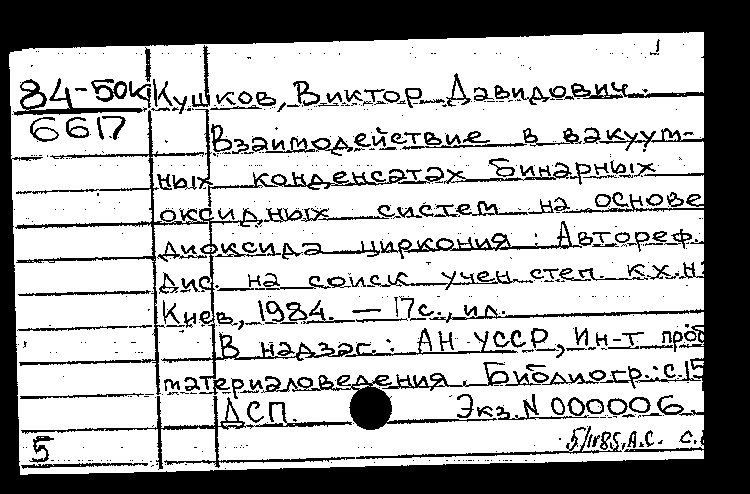 84-50к Кушков, Виктор Давидович.
6617
Взаимодействие в вакуум-
ных конденсатах бинарных
оксидных систем на основе
диоксида циркония : Автореф.
дис. на соиск учен. степ. к.х.н.
Киев, 1984. — 17с., ил.
В надзаг.: АН УССР, Ин-т проб
материаловедения. Библиогр.: с.15
ДСП. Экз. N 000006.
5 А.С. с.